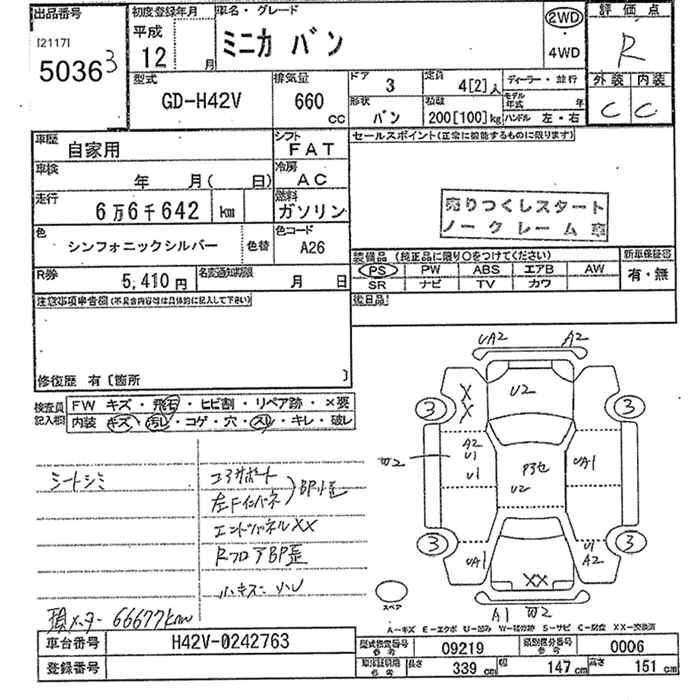 出品番号 初度登録年月 車名・グレード 2WD 評価点
[2117] 平成 ミニカ バン ・ R
5036 3 12 月 4WD
型式 排気量 ドア 3 定員 4[2]人 ディーラー・並行 外装 内装
GD-H42V 660 cc 形状 バン 積載 200[100]kg モデル年式 年 C C
ハンドル 左・右
車歴 自家用 シフト FAT セールスポイント(正常に機能するものに限ります)
車検 年 月( 日) 冷房 AC
走行 6万6千642 km 燃料 ガソリン 売りつくしスタート
ノークレーム
色 シンフォニックシルバー 色替 色コード A26
装備品 (純正品に限り○をつけてください) 新車保証書
PS PW ABS エアB AW 有・無
R券 5,410円 名変通知期限 月 日 SR ナビ TV カワ
注意事項申告欄(不具合内容等は具体的に記入して下さい) 後日品
修復歴 有〔箇所 〕
検査員記入欄 FW キズ・飛石・ヒビ割・リペア跡・×要
内装 キズ・汚レ・コゲ・穴・スレ・キレ・破レ
シートシミ コアサポート
左Fインパネ BP小歪
エンドパネルXX
RフロアBP歪
小キズ・凹
積メーター 66677km
UA2 A2
X U2
X
3 3
A2
U1
U1 P3セ UA1
U2
3 3
UA1 U1
A2
XX
スペア A1
A-キズ E-エクボ U-凹み W-補修跡 S-サビ C-腐食 XX-交換済
車台番号 H42V-0242763 型式指定番号 参考 09219 類別区分番号 参考 0006
登録番号 車体証明用 参考 長さ 339 cm 幅 147 cm 高さ 151 cm